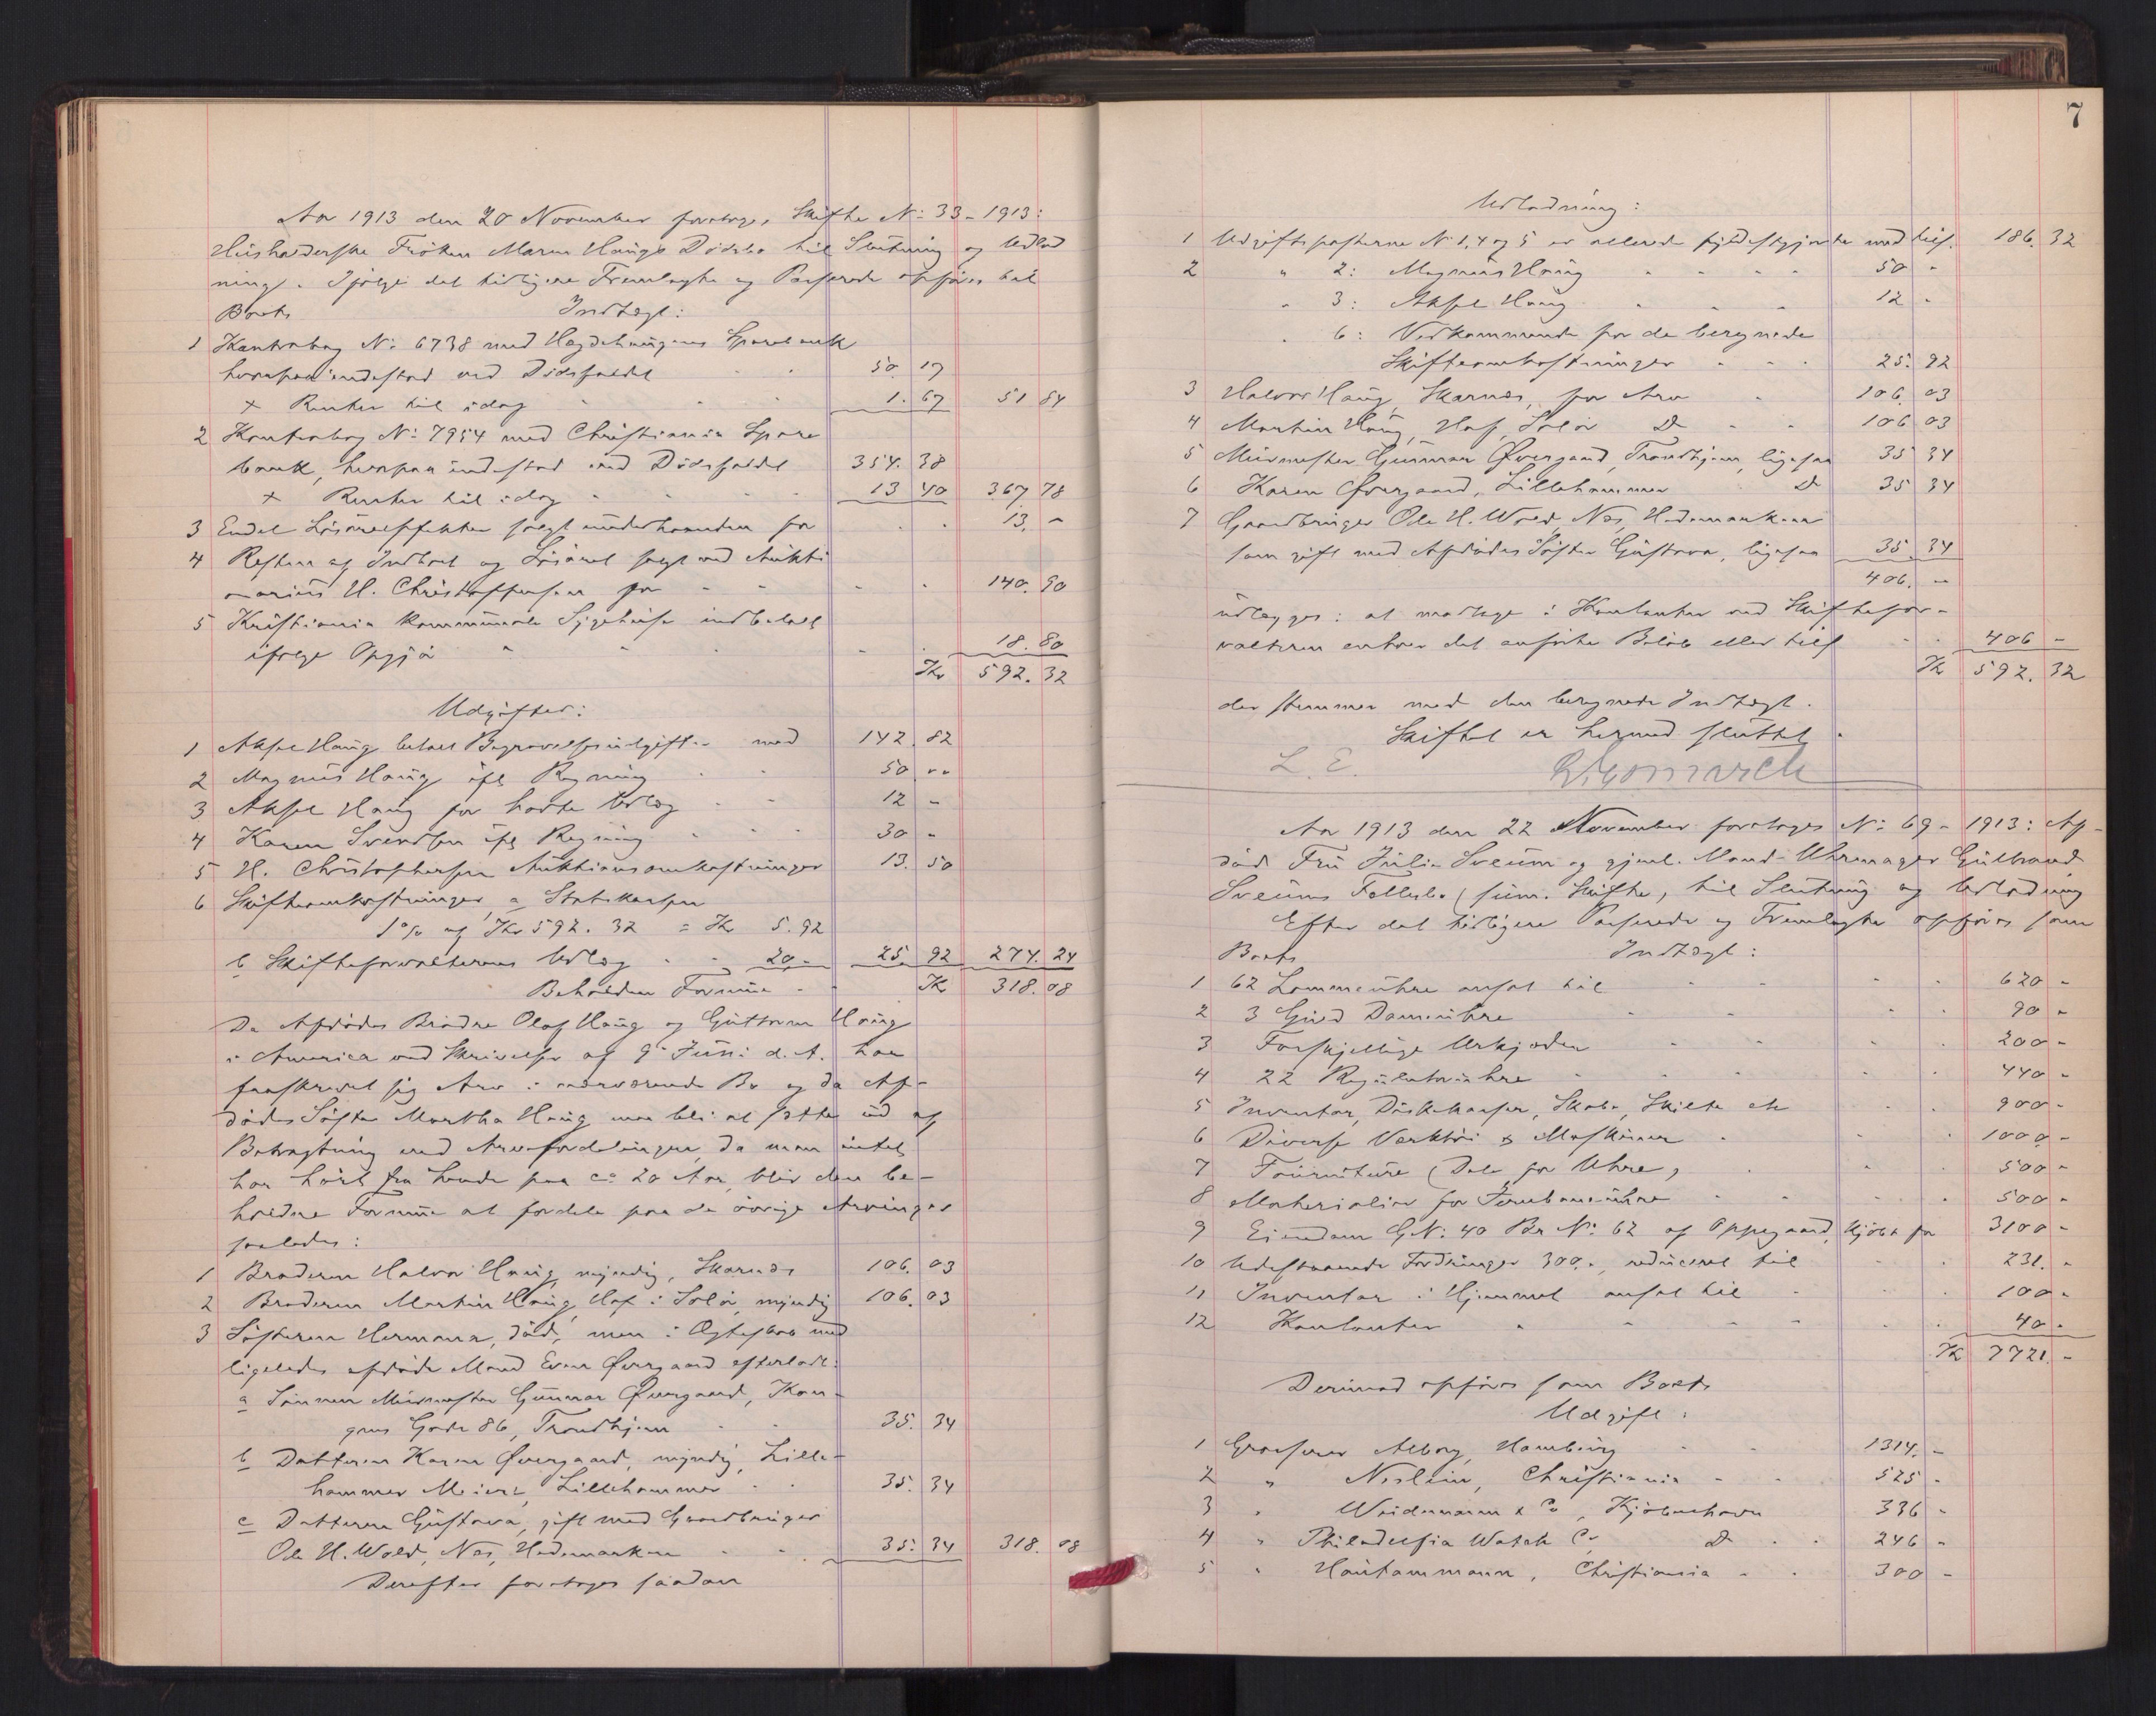 Aar 1913 den 20 November foretoges Skifte No: 33 - 1913:
Husholderske Fröken Maren Haugs Dödsbo til Slutning og Udlod
ning. Ifölge det tidligere Fremlagte og Passerede opföres bel
Boets Indtægt:
1 Kontrabog No: 6738 med Hegdehaugens Sparebank
hvorpaa indestod ved Dödsfaldet 50. 17
+ Renter til idag 1. 67 51 84
2 Kontrabog No: 7954 med Christiania Spare
bank, hvorpaa indestod ved Dödsfaldet 354. 38
+ Renter til idag 13 40 367 78
3 Endel Lösöreeffekter solgt underhaanden for 13. -
4 Resten af Indbo og Lösöre solgt ved Auktio
narius H. Christophersen for 140. 90
5 Kristiania kommunale Sygehuse indbetalt
ifölge Opgjör 18. 80
Kr 592. 32
Udgifter:
1 Aksel Haug betalt Begravelsesudgifter med 142. 82
2 Magnus Haug ifl Regning 50 --
3 Aksel Haug for havte Udlæg 12 -
4 Karen Svendsen ifl Regning 30 -
5 H. Christophersen Auktionsomkostninger 13. 50
6 Skifteomkostninger a Statskassen
1% af Kr 592. 32 = Kr 5. 92
b Skifteforvalterens Udlæg 20 - 25. 92 274. 24
Beholden Formue Kr 318. 08
Da Afdödes Brödre Olaf Haug og Guttorm Haug
i America ved Skrivelse af 9. Juni d. A. har
fraskrevet sig Arv i nærværende Bo og da Af-
dödes Söster Martha Haug maa bli at sætte ud af
Betragtning ved Arvefordelingen, da man intet
har hört fra hende paa ca 20 Aar, blir den be-
holdne Formue at fordele paa de övrige Arvinger
saaledes:
1 Broderen Halvor Haug, myndig, Skarnes 106. 03
2 Broderen Martin Haug, Hof i Solör, myndig 106. 03
3 Sösteren Hermana, död, men i Ægteskab med
ligeledes afdöde Mand Even Øvergaard efterladt:
a Sönnen Murmester Gunnar Øvergaard, Kon-
gens Gade 86, Trondhjem 35. 34
b Datteren Karen Øvergaard, myndig, Lille-
hammer Meieri, Lillehammer 35. 34
c Datteren Gustava, gift med Gaardbruger
Ole H. Wold, Nes, Hedemarken 35. 34 318. 08
Derefter foretoges saadan
7
Udlodning:
1 Udgiftsposterne No 1, 4 og 5 er allerede fyldestgjorte med tils. 186. 32
2 " 2: Magnus Haug 50 -
" 3: Aksel Haug 12 -
" 6: Vedkommende for de beregnede
Skifteomkostninger 25. 92
3 Halvor Haug, Skarnes, for Arv 106. 03
4 Martin Haug, Hof, Solör Do 106 03
5 Murmester Gunnar Øvergaard, Trondhjem, ligesaa 35 34
6 Karen Øvergaard, Lillehammer Do 35 34
7 Gaardbruger Ole H. Wold, Nes, Hedemarken
som gift med Afdödes Söster Gustava, ligesaa 35. 34
406. -
udlægges: at modtage i Kontanter ved Skiftefor-
valteren enhver det anförte Belöb eller tils 406 -
Kr 592. 32
der stemmer med den beregnede Indtægt.
Skiftet er hermed sluttet.
L. E.
Aar 1913 den 22 November foretoges No: 69 - 1913: Af-
död Fru Julie Sveum og gjenl. Mand Uhrmager Gulbrand
Sveums Fællesbo (sum. Skifte) til Slutning og Udlodning
Efter det tidligere Passerede og Fremlagte opföres som
Boets Indtægt:
1 62 Lommeuhre ansat til 620 -
2 3 Guld Dameuhre 90 -
3 Forskjellige Urkjæder 200 -
4 22 Regulatoruhre 440 -
5 Inventar, Diskkasser, Skabe, Skilte etc 900 -
6 Diverse Verktöi & Maskiner 1000 -
7 Fourniture (Dele for Uhre) 500 -
8 Materialier for Jernbaneuhre 500 -
9 Eiendom G.No: 40 Br No: 62 af Oppegaard, kjöbt for 3100 -
10 Udestaaende Fordringer 300.-, reduceret til 231. -
11 Inventar i Hjemmet ansat til 100 -
12 Kontanter 40 -
Kr 7721. -
Derimod opföres som Boets
Udgift:
1 Grosserer Alborg, Hamburg 1314. -
2 " Neslein, Christiania 525 -
3 " Weidemann & Co, Kjöbenhavn 336 -
4 " Philadelfia Watch Co, Do 246 -
5 " Hautammann, Christiania 300 -